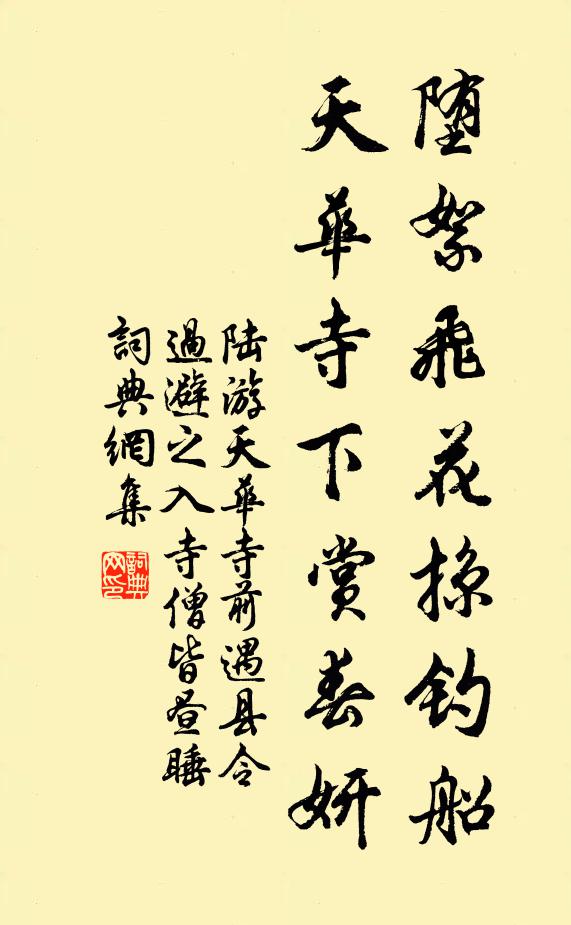 堕絮飛花掠钓船
天華寺下賞春妍
陆游天華寺前遇县令
過避之入寺僧皆昼睡
詞典網集
詞典
网印